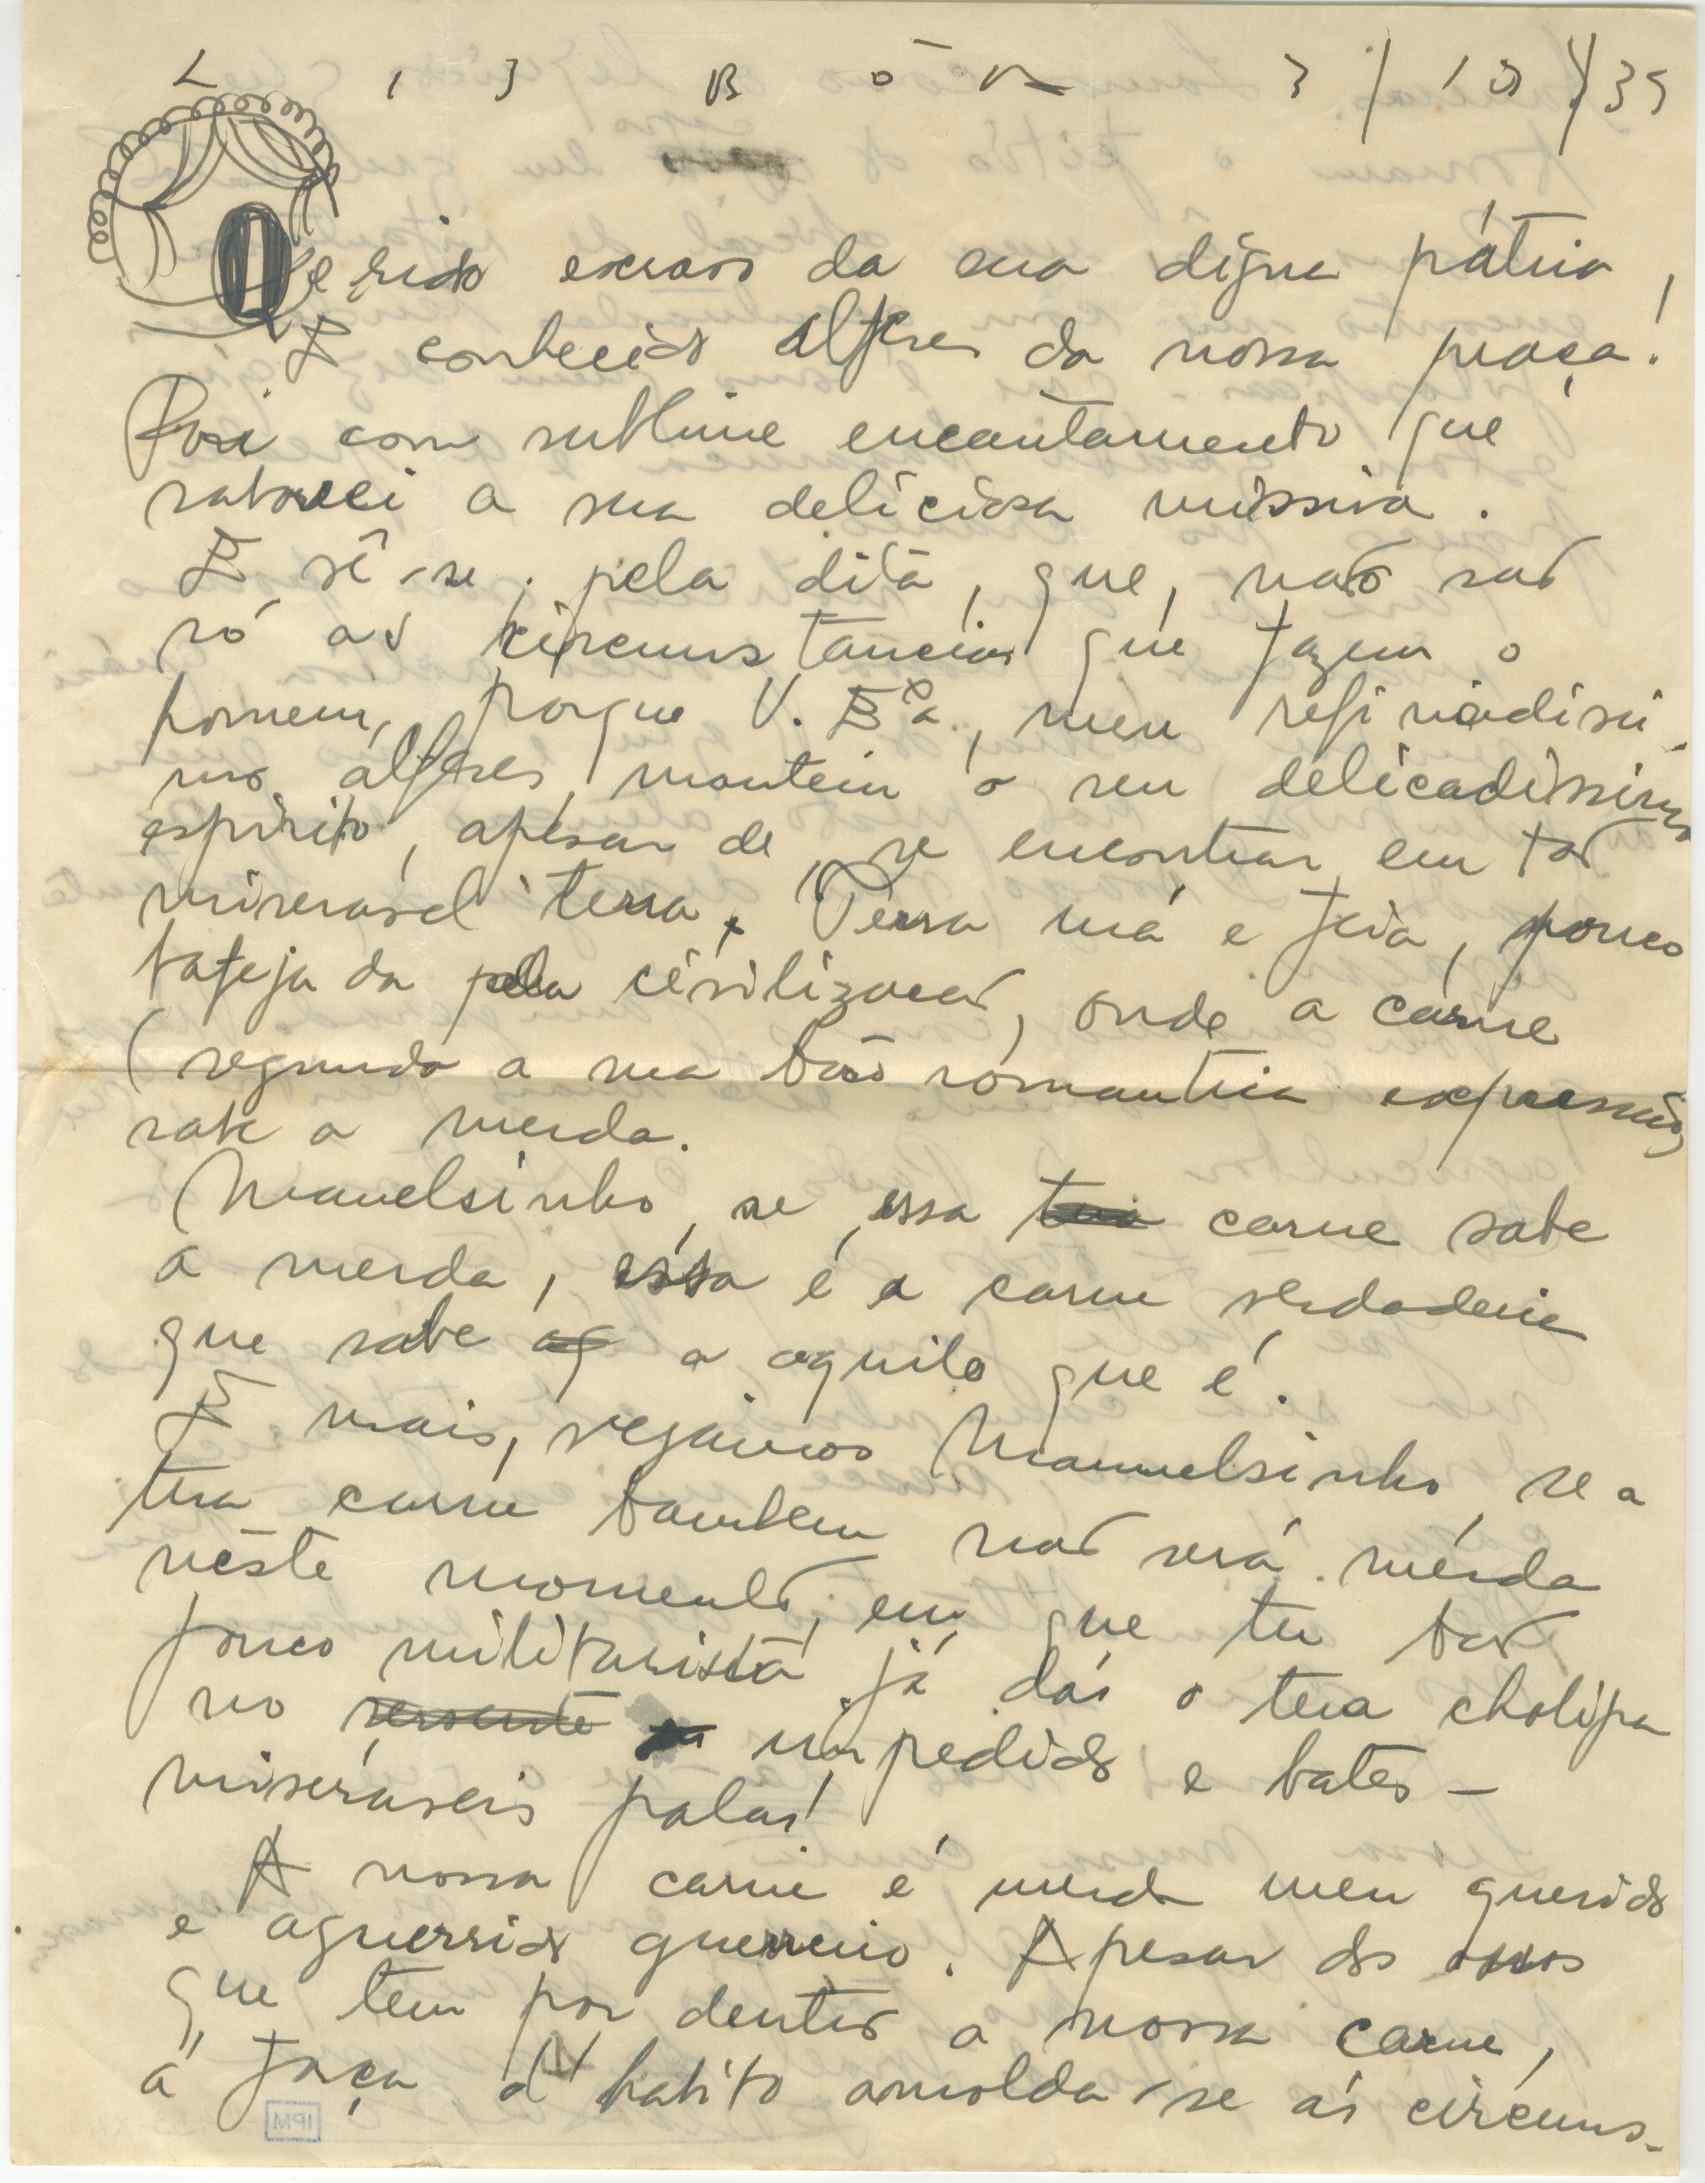 LISBÔA 3/10/35
Querido escravo da sua digna pátria,
E conhecido alferes da nossa praça!
Foi com sublime encantamento que
saboreei a sua deliciosa missiva.
E vê-se pela dita, que, não são
só as circumstancias que fazem o
homem, porque V. Exª, meu refinadissi-
mo alferes, mantem o seu delicadissimo
espirito, apesar de se encontrar em tão
miseravel terra. Terra má e feia, pouco
bafejada pela civilização, onde a carne
(segundo a sua tão romantica expressão)
sabe a merda.
Manuelsinho, se essa carne sabe
a merda, essa é a carne verdadeira
que sabe a aquilo que é.
E mais, vejamos Manuelsinho, se a
tua carne tambem não será mérda
nêste momento, em que tu tão
pouco militarista já dás a tua cholipa
no impedido e bates -
miseraveis palas!
A nossa carne é merda meu querido
e aguerrido guerreiro. Apesar do ossos
que tem por dentro a nossa carne,
á força d'habito amolda-se ás circums-
IPM